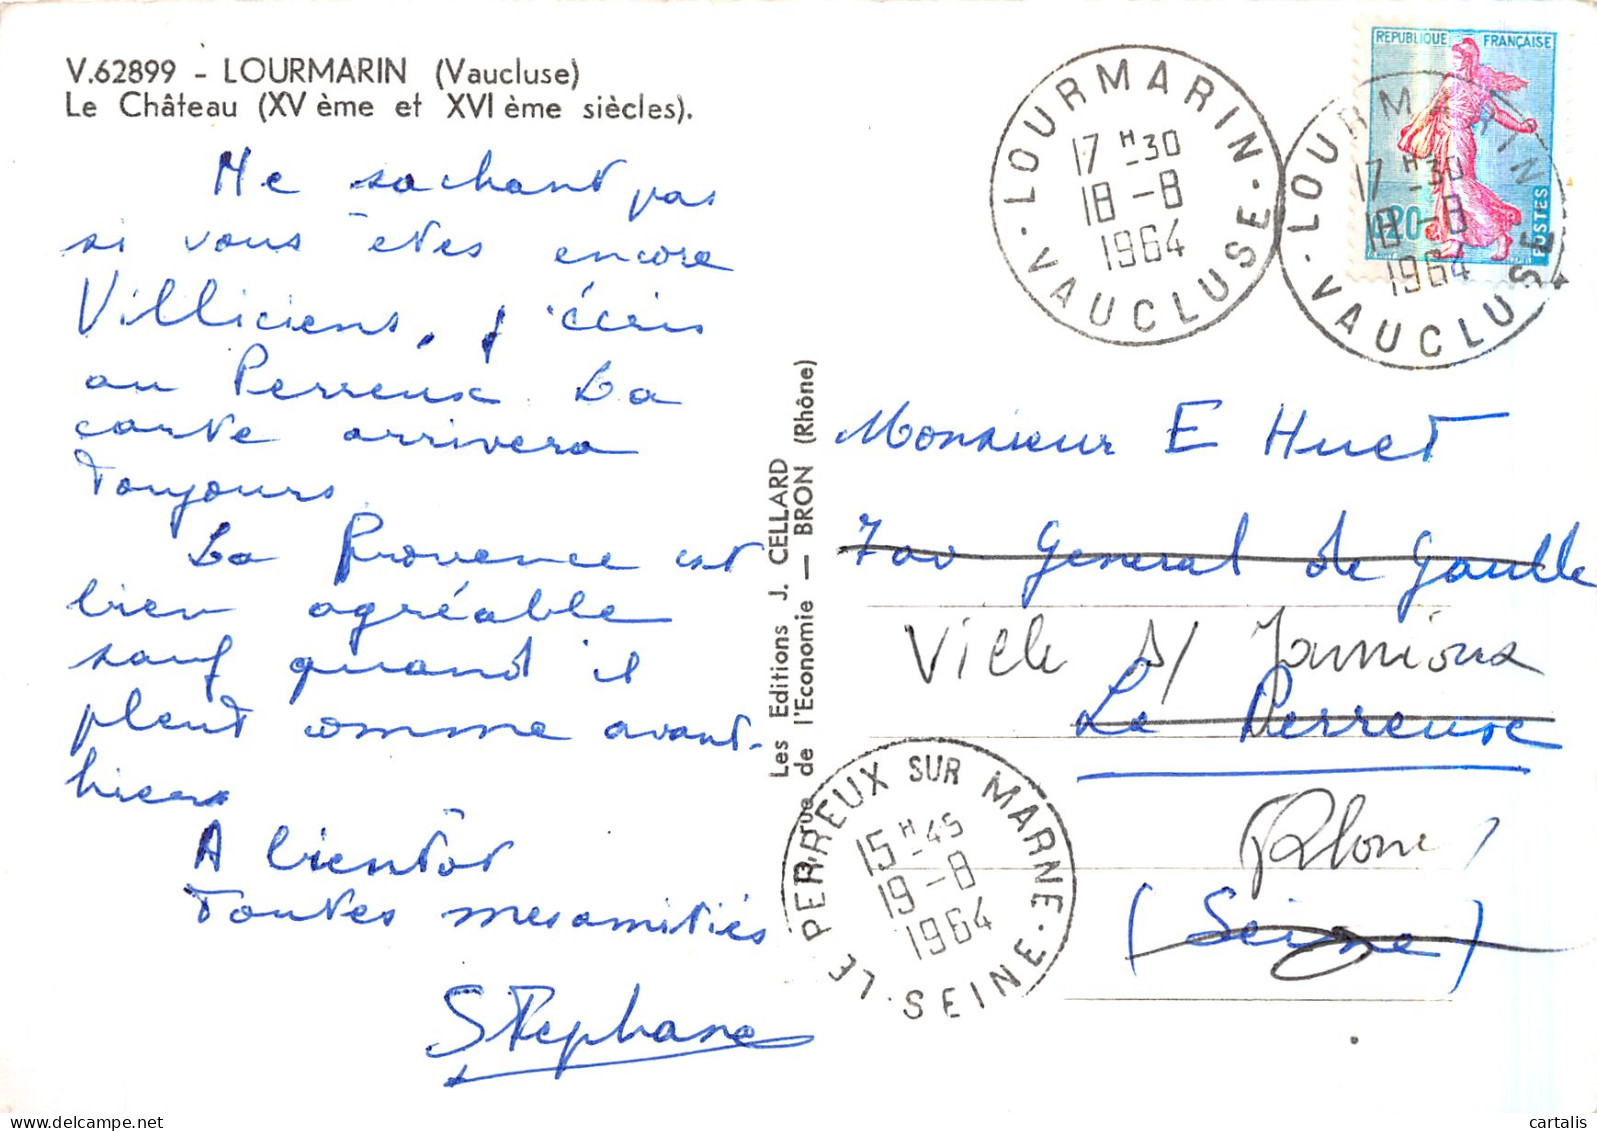 V.62899 - LOURMARIN (Vaucluse)
Le Château (XV ème et XVI ème siècles).
Ne sachant pas
si vous êtes encore
Villiciens, j'écris
au Perreux La
carte arrivera
toujours
La Provence est
bien agréable
sauf quand il
pleut comme avant-
hier
A bientôt
Toutes mes amitiés
Stephane
Les Editions J. CELLARD
rue de l'Economie — BRON (Rhône)
LOURMARIN
17 H-30
18-8
1964
VAUCLUSE
REPUBLIQUE FRANÇAISE
0,20
POSTES
LOURMARIN
17 H-30
18-8
1964
VAUCLUSE
Monsieur E Huet
7 av General de Gaulle
Ville s/ Jarnioux
Le Perreux
Rhone
(Seine)
LE PERREUX SUR MARNE
15 H-45
19-8
1964
SEINE
cartalis